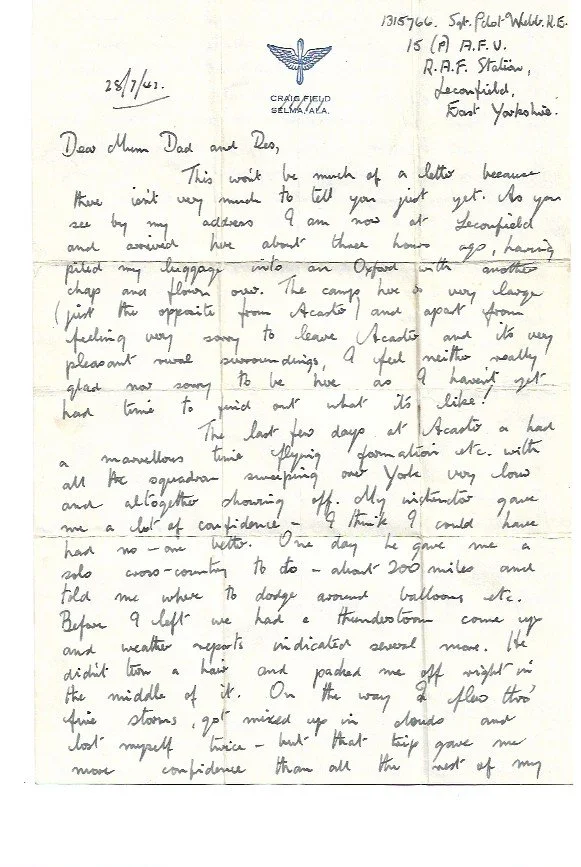 1315766. Sgt. Pilot Webb. H.E.
15 (P) A.F.U.
R.A.F. Station,
Leconfield,
East Yorkshire.
28/7/43.
CRAIG FIELD
SELMA, ALA.
Dear Mum Dad and Des,
This won't be much of a letter because
there isn't very much to tell you just yet. As you
see by my address I am now at Leconfield
and arrived here about three hours ago, having
piled my luggage into an Oxford with another
chap and flown over. The camp here is very large
(just the opposite from Acaster) and apart from
feeling very sorry to leave Acaster and its very
pleasant rural surroundings, I feel neither really
glad nor sorry to be here as I haven't yet
had time to find out what it's like!
The last few days at Acaster I had
a marvellous time flying formation etc. with
all the squadron sweeping over York very low
and altogether showing off. My instructor gave
me a lot of confidence – I think I could have
had no-one better. One day he gave me a
solo cross-country to do – about 200 miles and
told me where to dodge around balloons etc.
Before I left we had a thunderstorm come up
and weather reports indicated several more. He
didn't turn a hair and packed me off right in
the middle of it. On the way I flew thro'
five storms, got mixed up in clouds and
lost myself twice – but that trip gave me
more confidence than all the rest of my